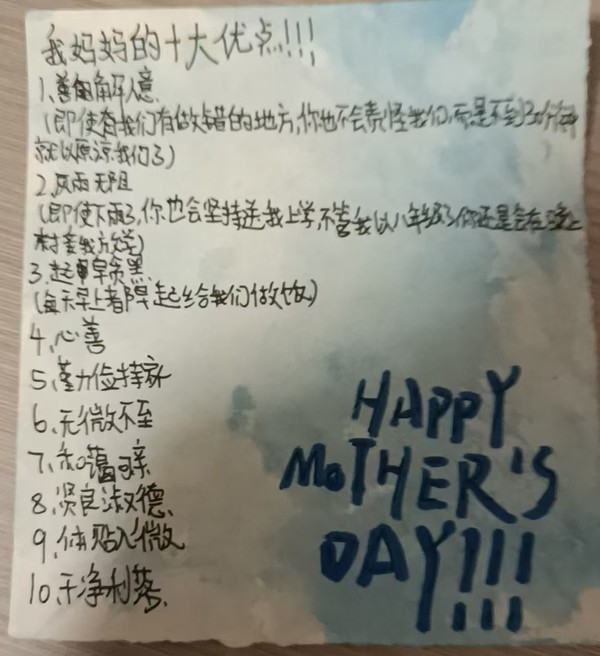 我妈妈的十大优点!!!
1.善解人意
(即使有我们有做错的地方,你也不会责怪我们,而是不到3分钟
就以原谅我们了)
2.风雨无阻
(即使下雨了,你也会坚持送我上学,不管我以八年级了你还是会在晚上
接我放学)
3.起早贪黑
(每天早上都早起给我们做饭)
4.心善
5.勤俭持家
6.无微不至
7.和蔼可亲
8.贤良淑德
9.体贴入微
10.干净利落
HAPPY
MOTHER'S
DAY!!!